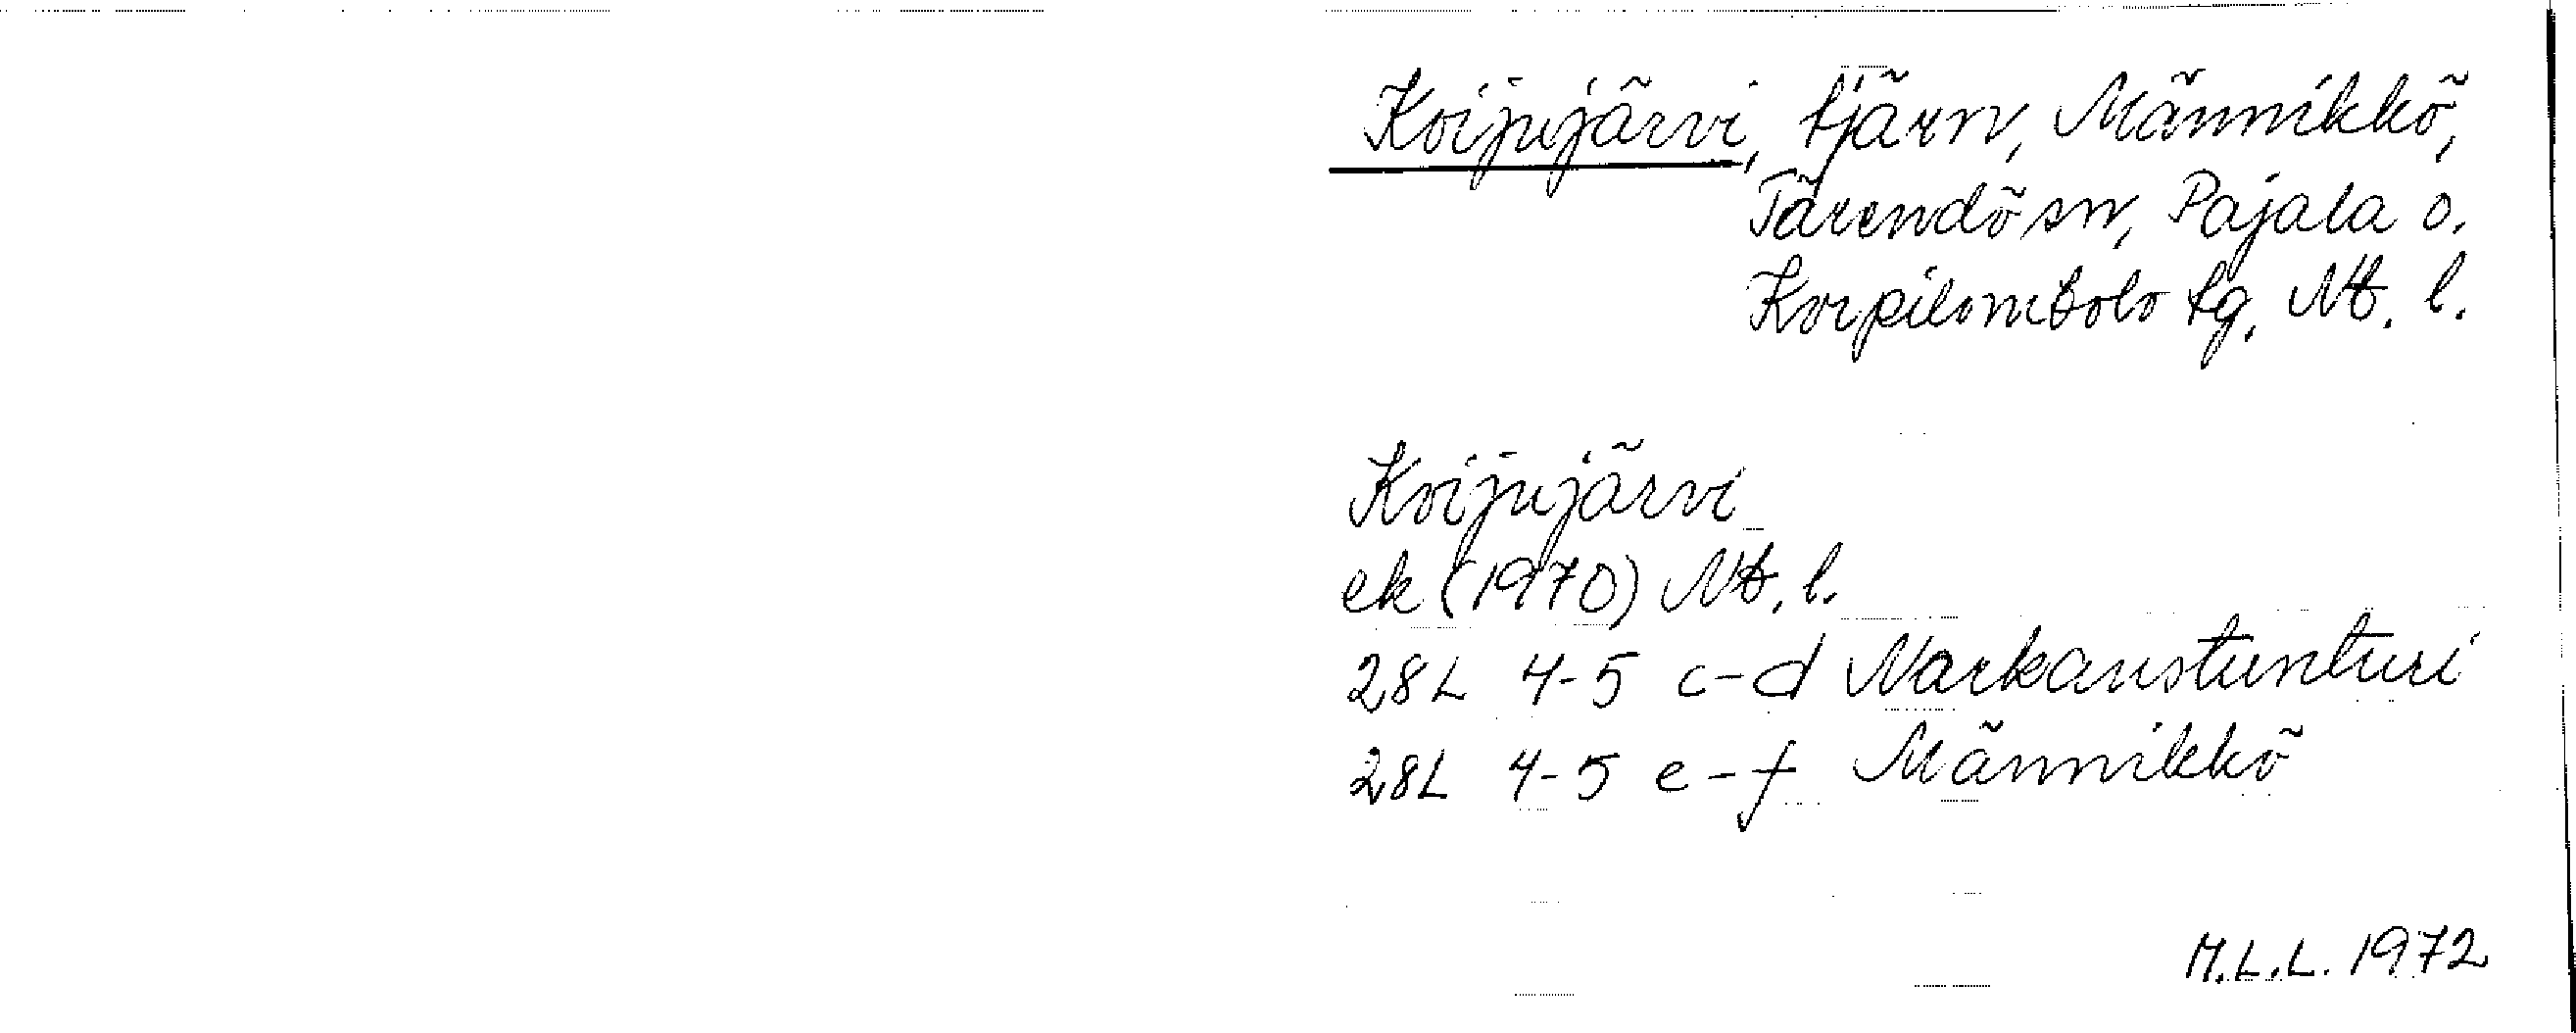 Koijujärvi, tjärn, Männikkö,
Tärendö sn, Pajala o.
Korpilombolo tg. Nb. l.
Koijujärvi
ek (1970) Nb. l.
28L 4-5 c-d Narkaustunturi
28L 4-5 e-f Männikkö
M.L.L. 1972